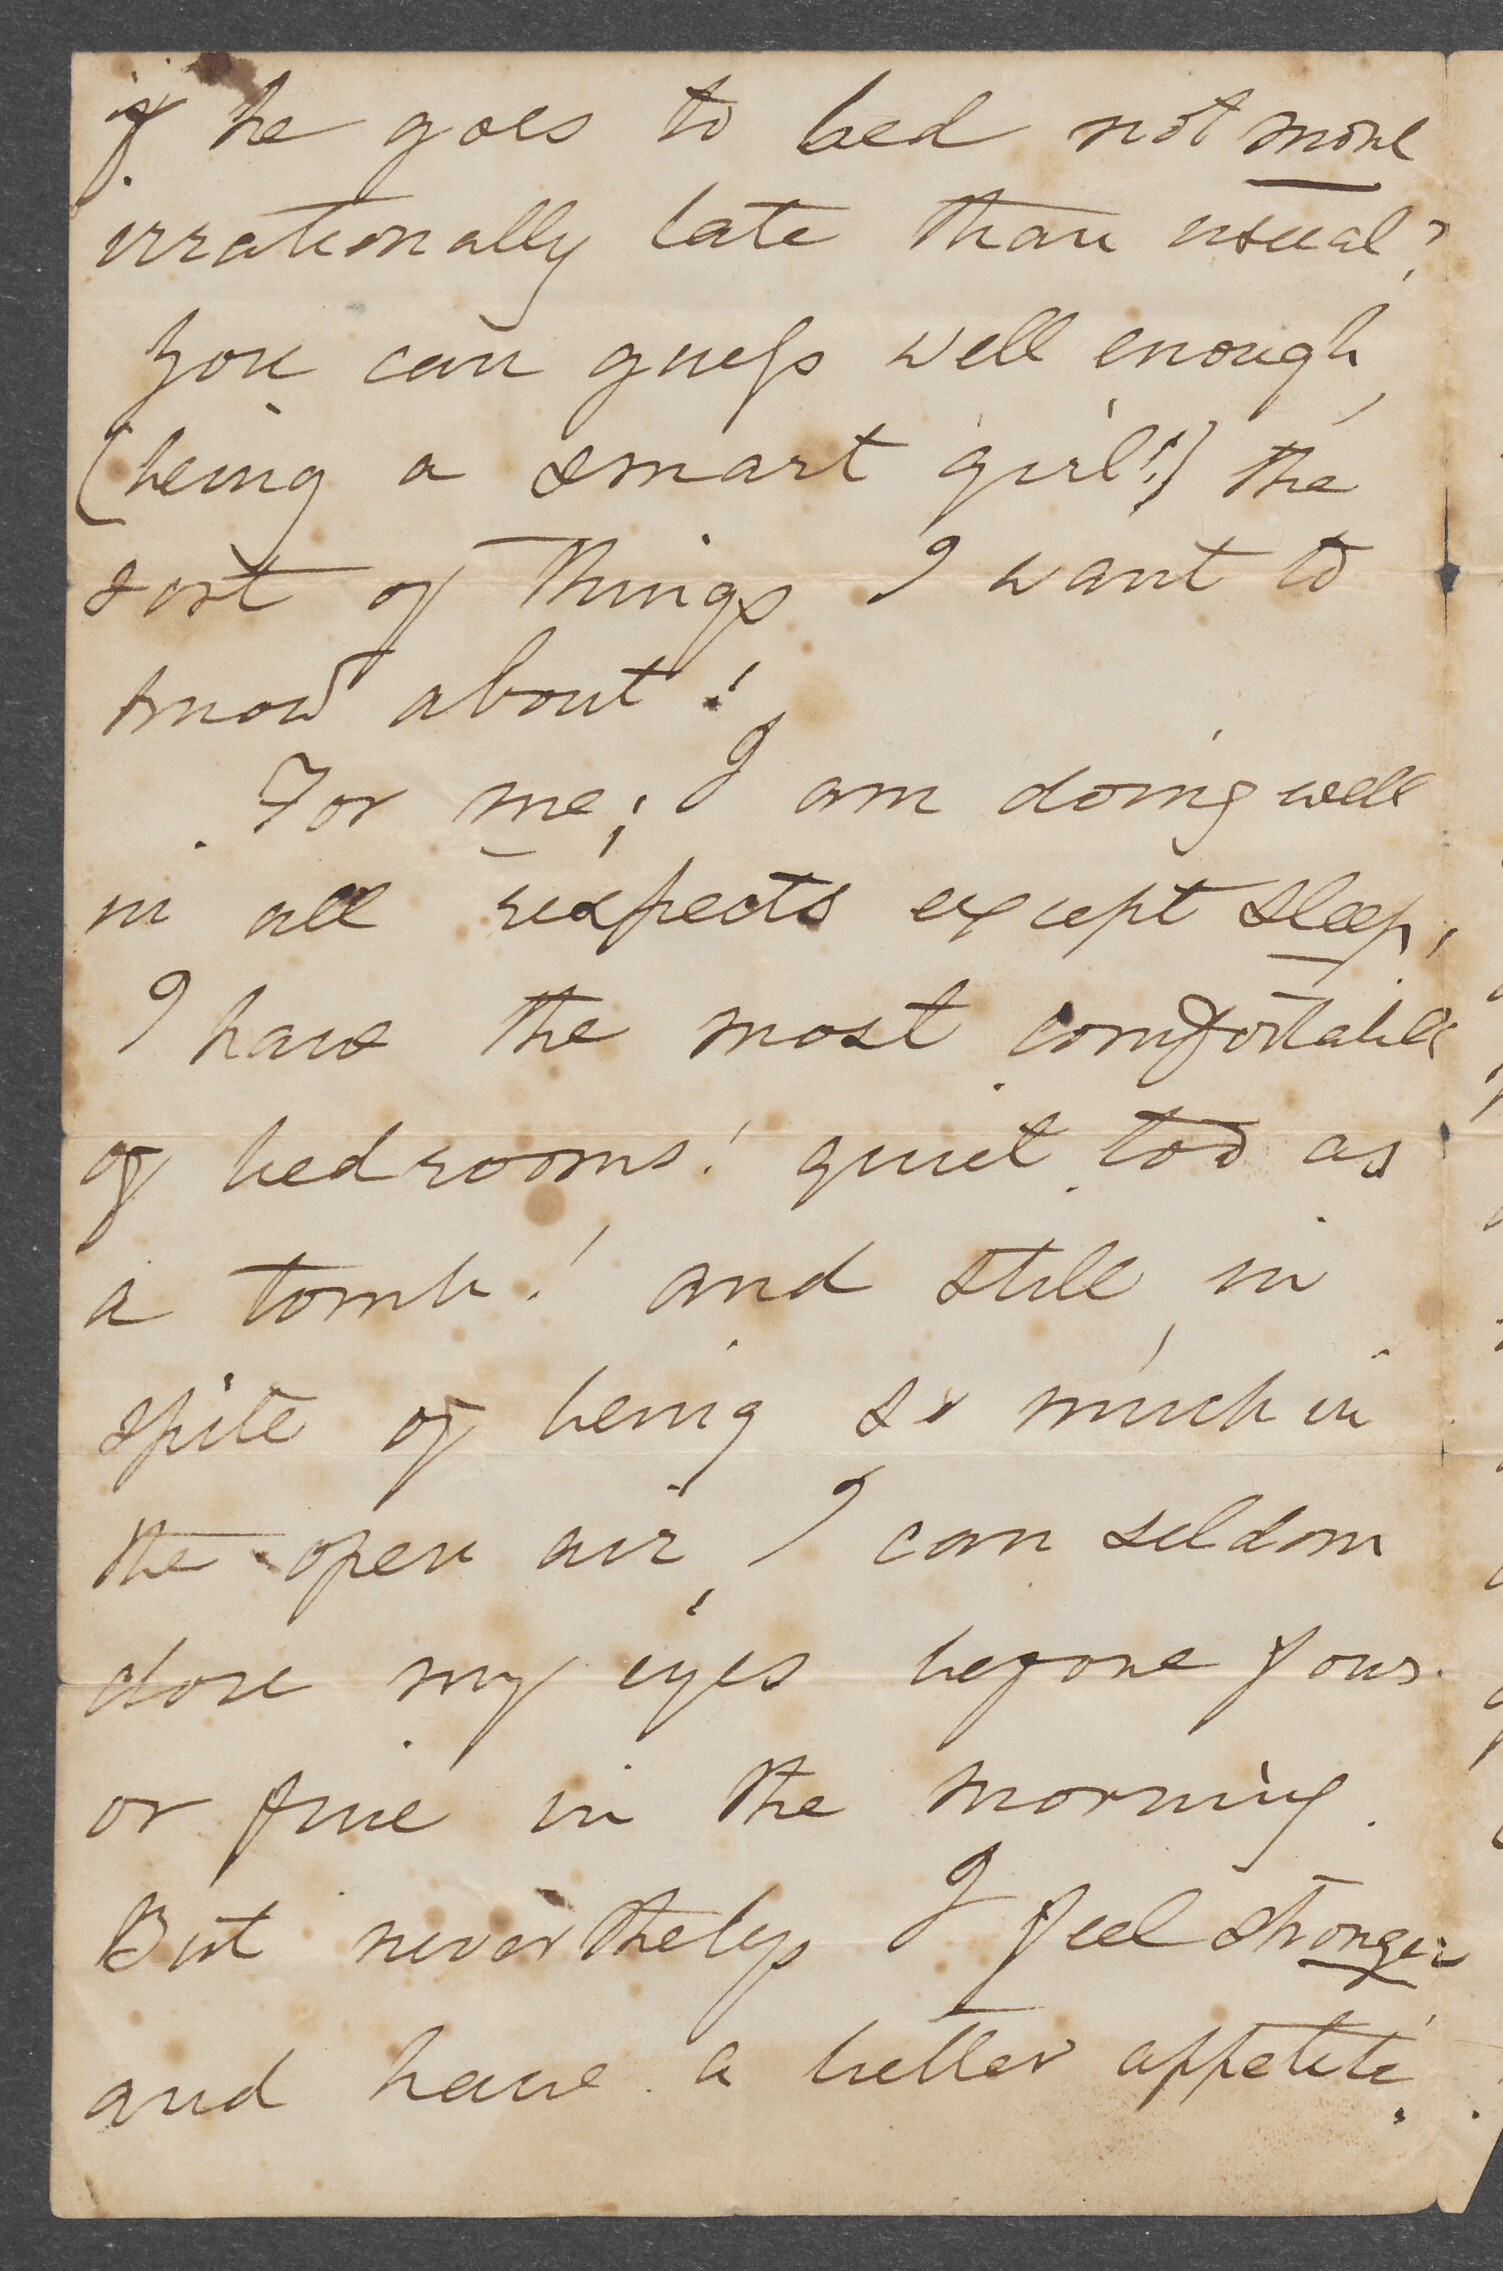 if he goes to bed not more
irrationally late than usual?
You can guess well enough,
(being a smart girl!) the
sort of things I want to
know about!
For me; I am doing well
in all respects except sleep,
I have the most comfortable
of bedrooms! quiet too as
a tomb! and still, in
spite of being so much in
the open air, I can seldom
close my eyes before four
or five in the morning.
But nevertheless I feel stronger
and have a better appetite.